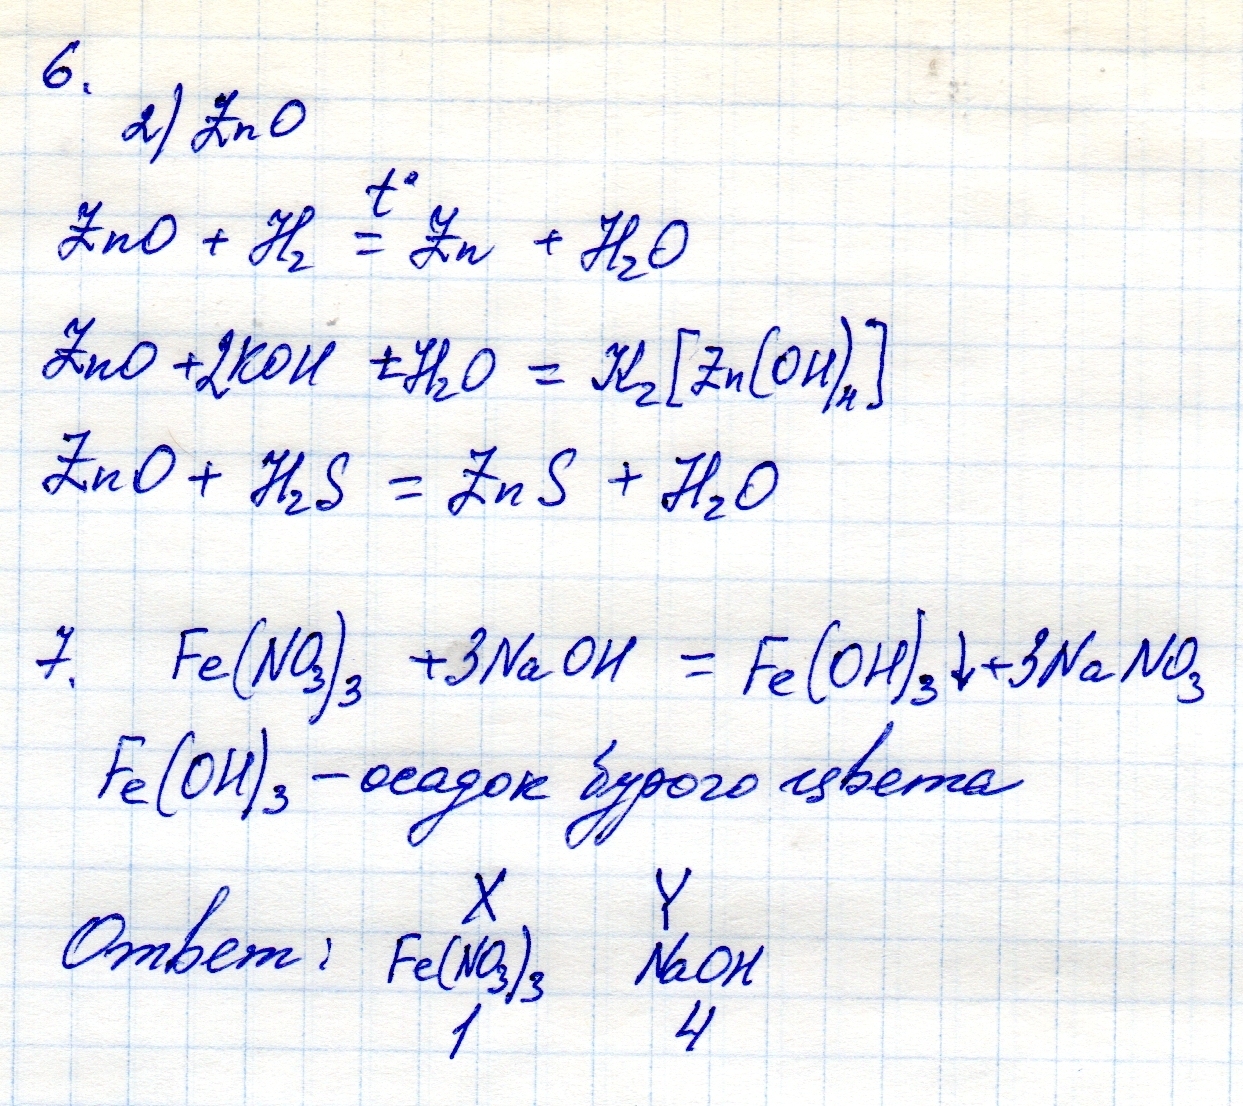 6.
2) ZnO
t°
ZnO + H₂ = Zn + H₂O
ZnO + 2KOH + H₂O = K₂[Zn(OH)₄]
ZnO + H₂S = ZnS + H₂O
7. Fe(NO₃)₃ + 3NaOH = Fe(OH)₃↓ + 3NaNO₃
Fe(OH)₃ – осадок бурого цвета
X Y
Ответ: Fe(NO₃)₃ NaOH
1 4